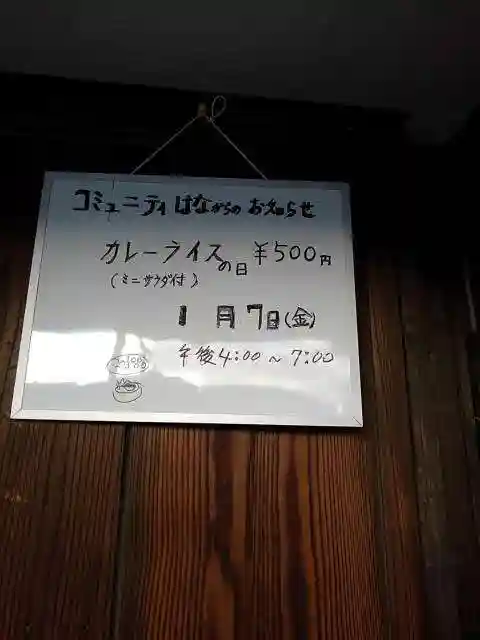 コミュニティはなからのお知らせ
カレーライスの日 ¥500円
(ミニサラダ付)
1月7日(金)
午後4:00～7:00